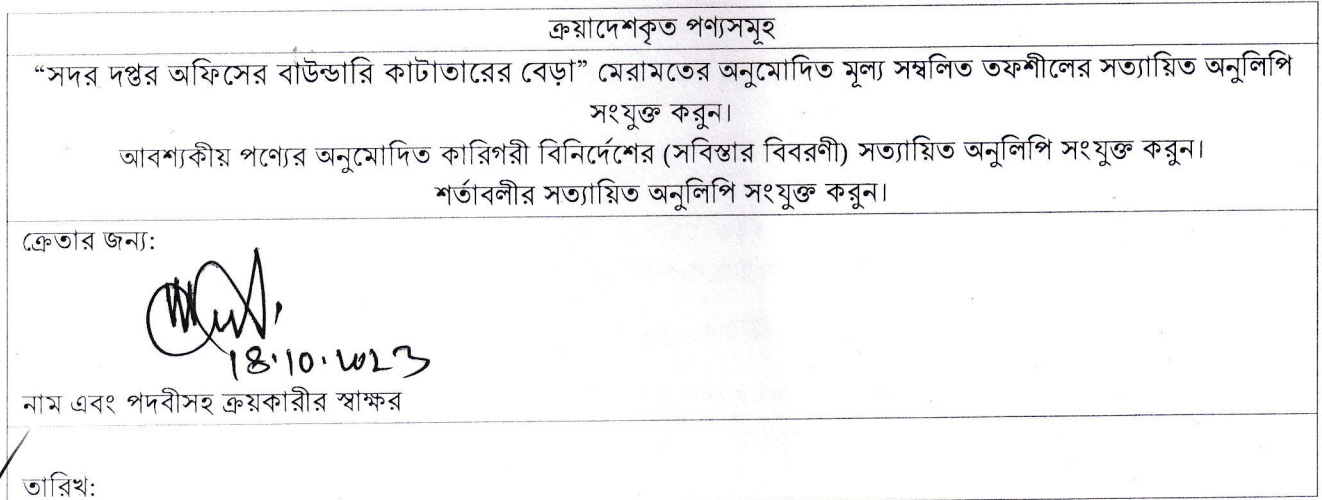 ক্রয়াদেশকৃত পণ্যসমূহ
“সদর দপ্তর অফিসের বাউন্ডারি কাটাতারের বেড়া” মেরামতের অনুমোদিত মূল্য সম্বলিত তফশীলের সত্যায়িত অনুলিপি
সংযুক্ত করুন।
আবশ্যকীয় পণ্যের অনুমোদিত কারিগরী বিনির্দেশের (সবিস্তার বিবরণী) সত্যায়িত অনুলিপি সংযুক্ত করুন।
শর্তাবলীর সত্যায়িত অনুলিপি সংযুক্ত করুন।
ক্রেতার জন্য:
18.10.2023
নাম এবং পদবীসহ ক্রয়কারীর স্বাক্ষর
তারিখ: